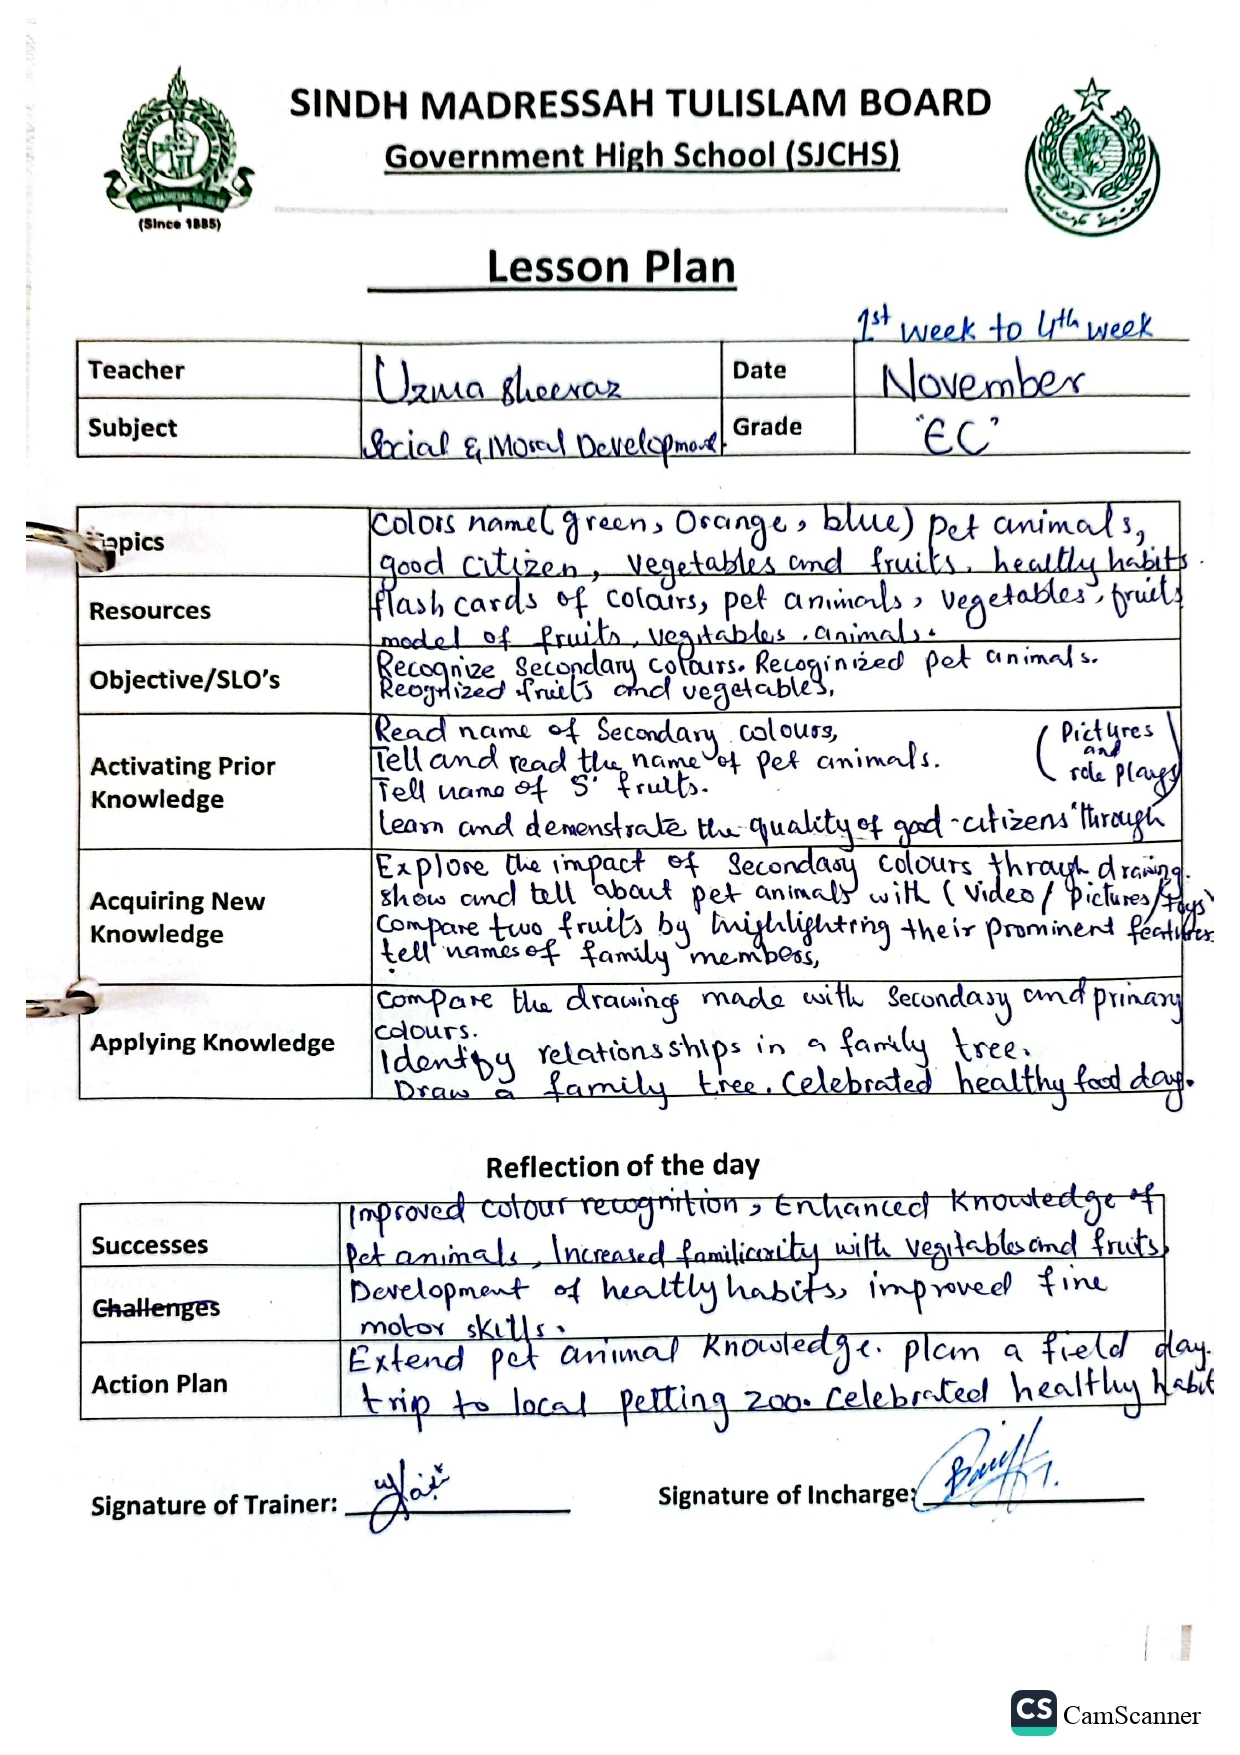 SINDH MADRESSAH TULISLAM BOARD
Government High School (SJCHS)
SINDH MADRESSAH-TUL-ISLAM
(Since 1885)
Lesson Plan
1st week to 4th week
Teacher Uzma Sheeraz Date November
Subject Social & Moral Development. Grade "EC"
Topics Colors name( green, Orange, blue) pet animals,
good citizen, vegetables and fruits. healthy habits.
Resources flash cards of colours, pet animals, vegetables, fruits
model of fruits, vegitables, animals.
Objective/SLO's Recognize Secondary colours. Recoginized pet animals.
Recognized fruits and vegetables,
Activating Prior Knowledge Read name of Secondary colours, (Pictures
Tell and read the name of pet animals. and
Tell name of 5 fruits. role plays)
learn and demenstrate the quality of good-citizens "through
Acquiring New Knowledge Explore the impact of Secondary colours through drawing.
show and tell about pet animals with (Video/pictures/toys)
compare two fruits by highlightring their prominent features
tell names of family members,
Applying Knowledge compare the drawings made with Secondary and primary
colours.
Identify relationsships in a family tree.
Draw a family tree. Celebrated healthy food day.
Reflection of the day
Successes Improved colour recognition, Enhanced Knowledge of
pet animals, Increased familiarity with vegitables and fruts,
Challenges Development of healtly habits, improved fine
motor skills.
Action Plan Extend pet animal Knowledge. plan a field day.
trip to local petting zoo. Celebrated healthy habit
Signature of Trainer:
Signature of Incharge:
CS CamScanner